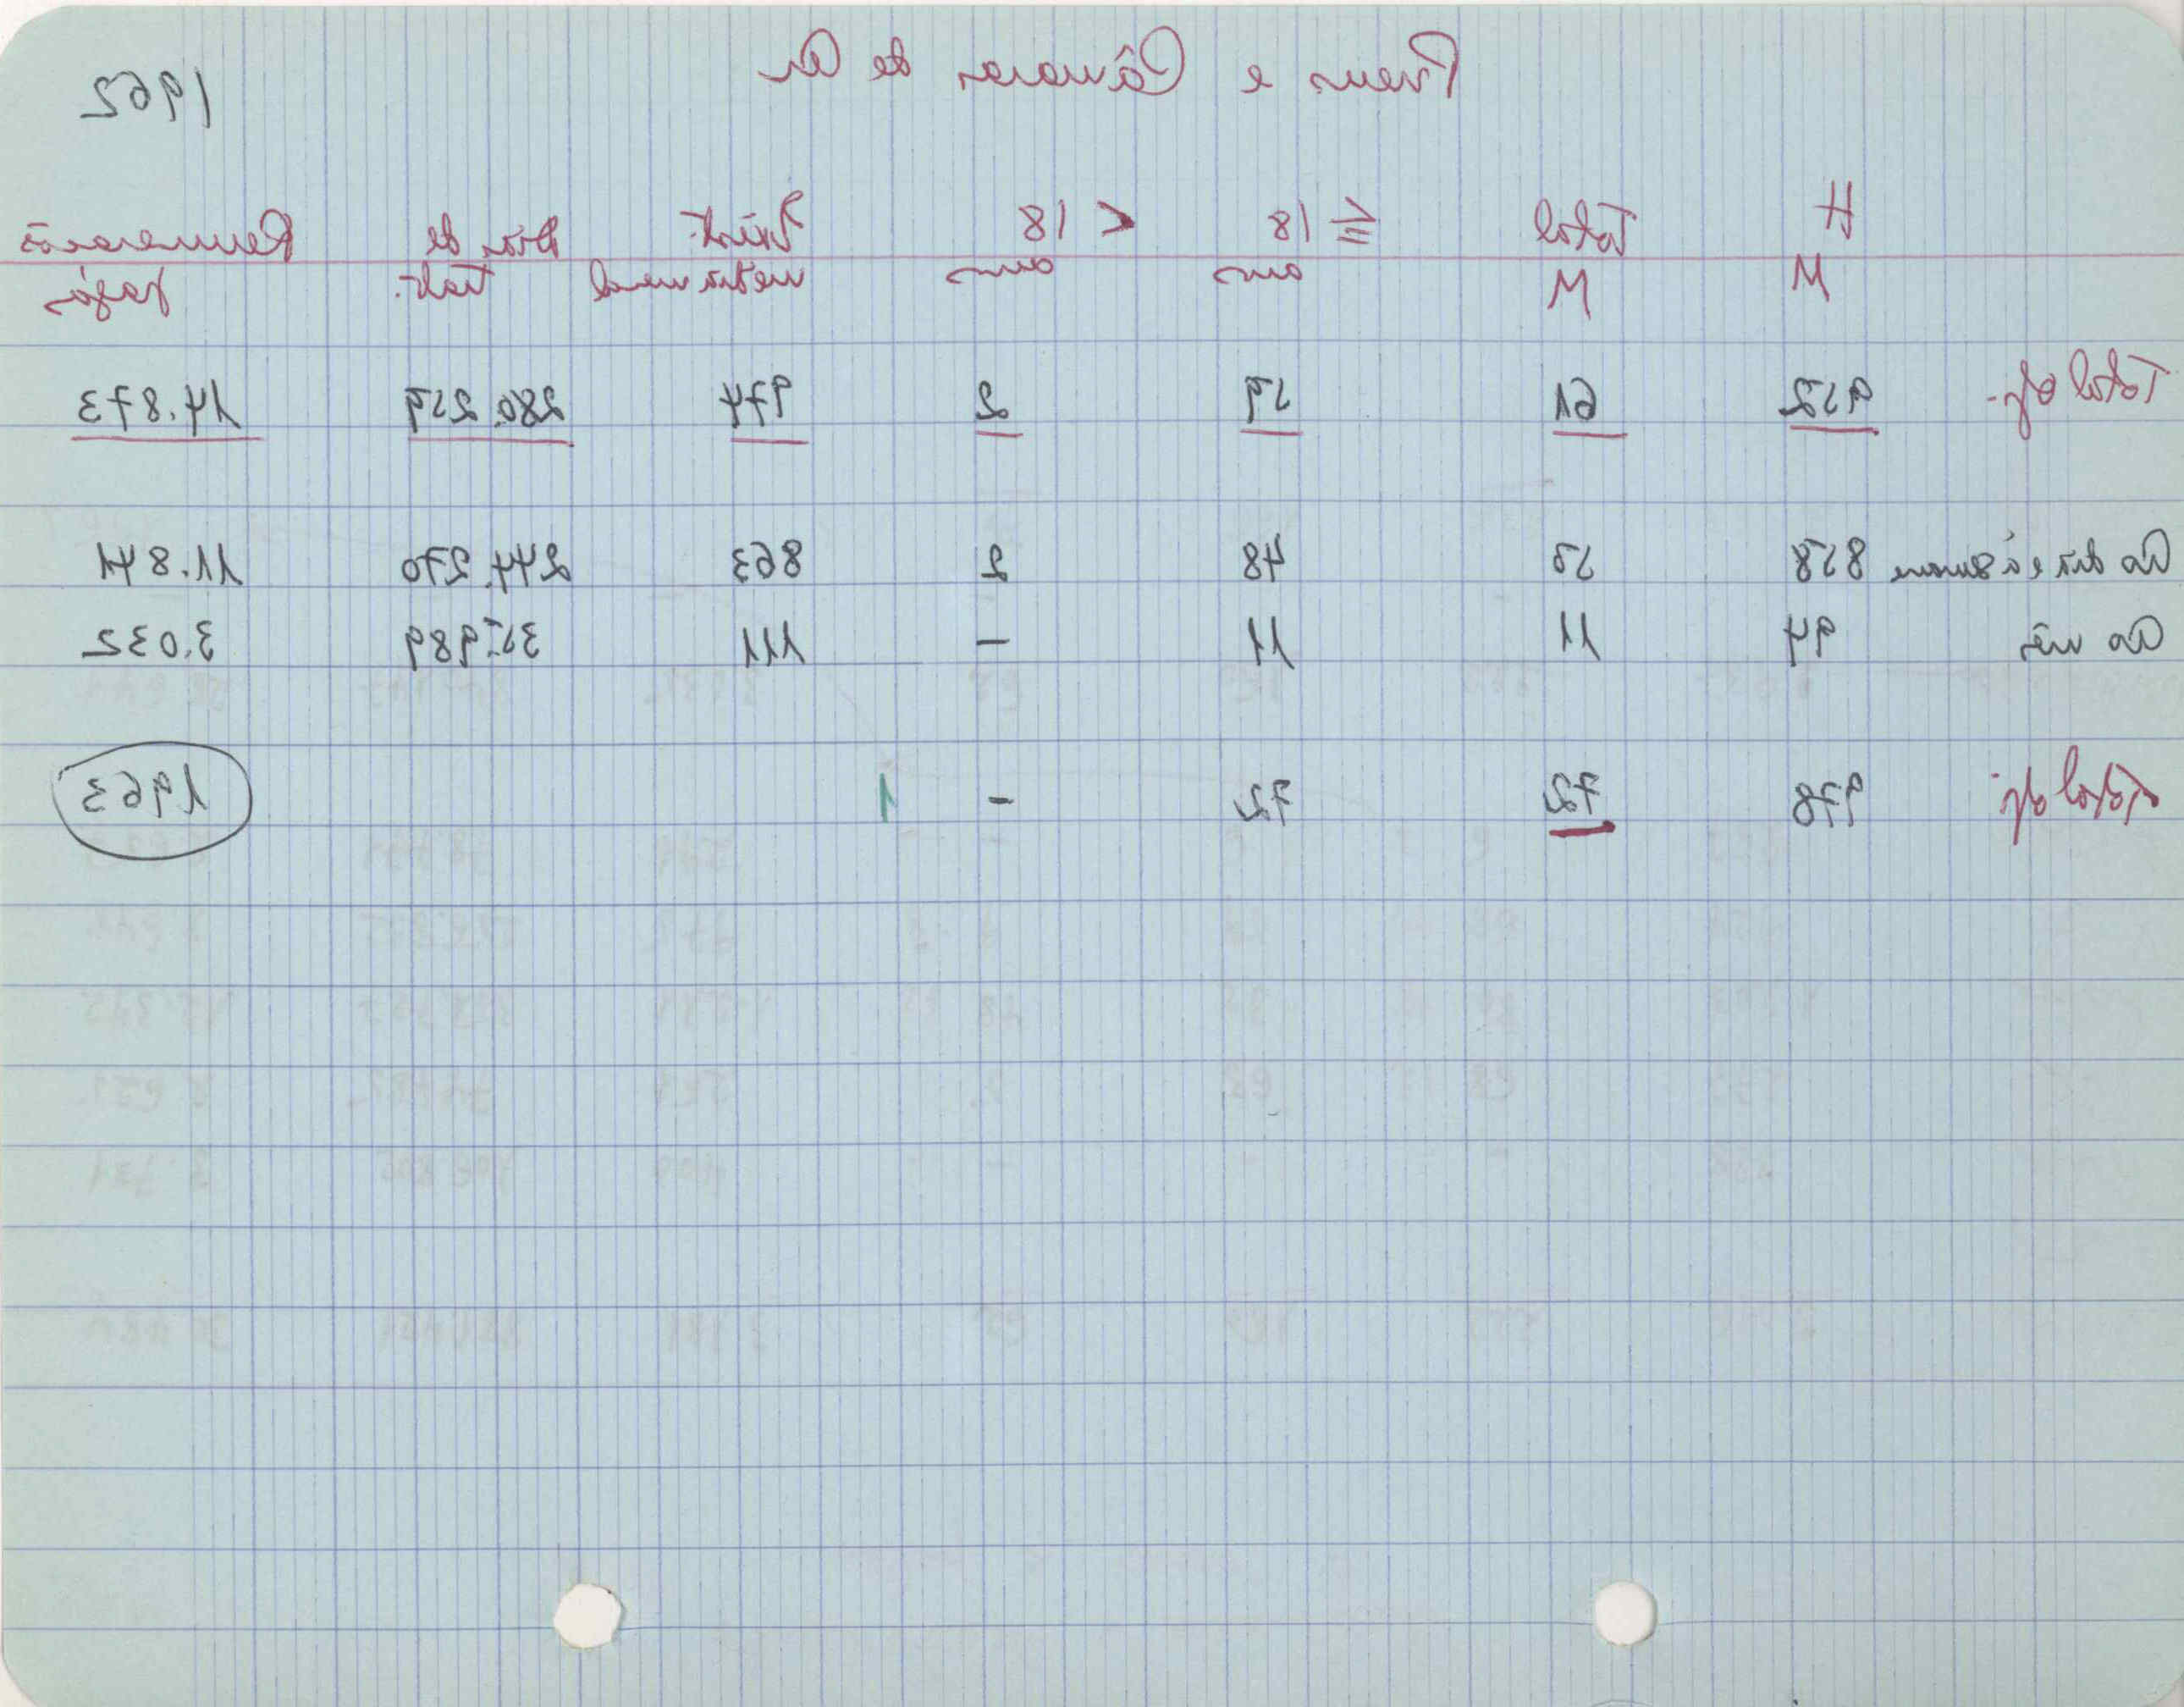 Pneus e Câmaras de Ar
1962
H M Total M ≧ 18 anos < 18 anos Exist. média mensal Dias de trab. Remunerações pagas
Total Of. 952 61 59 2 974 280.259 14.873
Ao dia e à semana 858 50 48 2 863 244.270 11.841
Ao mês 94 11 11 – 111 35.989 3.032
Total Of. 978 72 72 – 1 1963